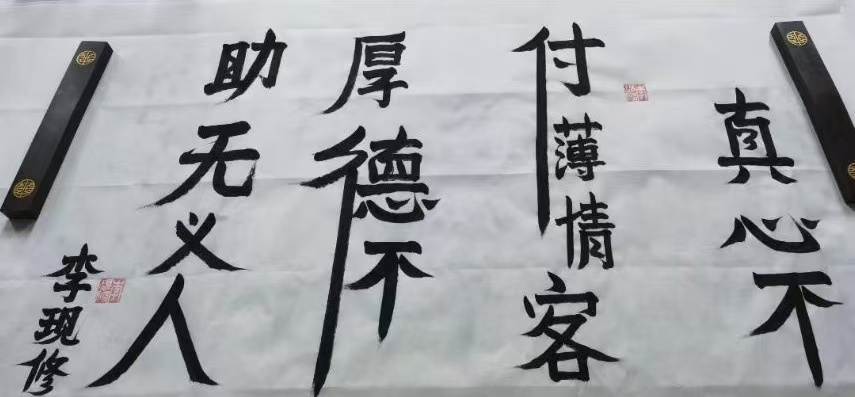 真心不
付薄情客
厚德不
助无义人
李现修